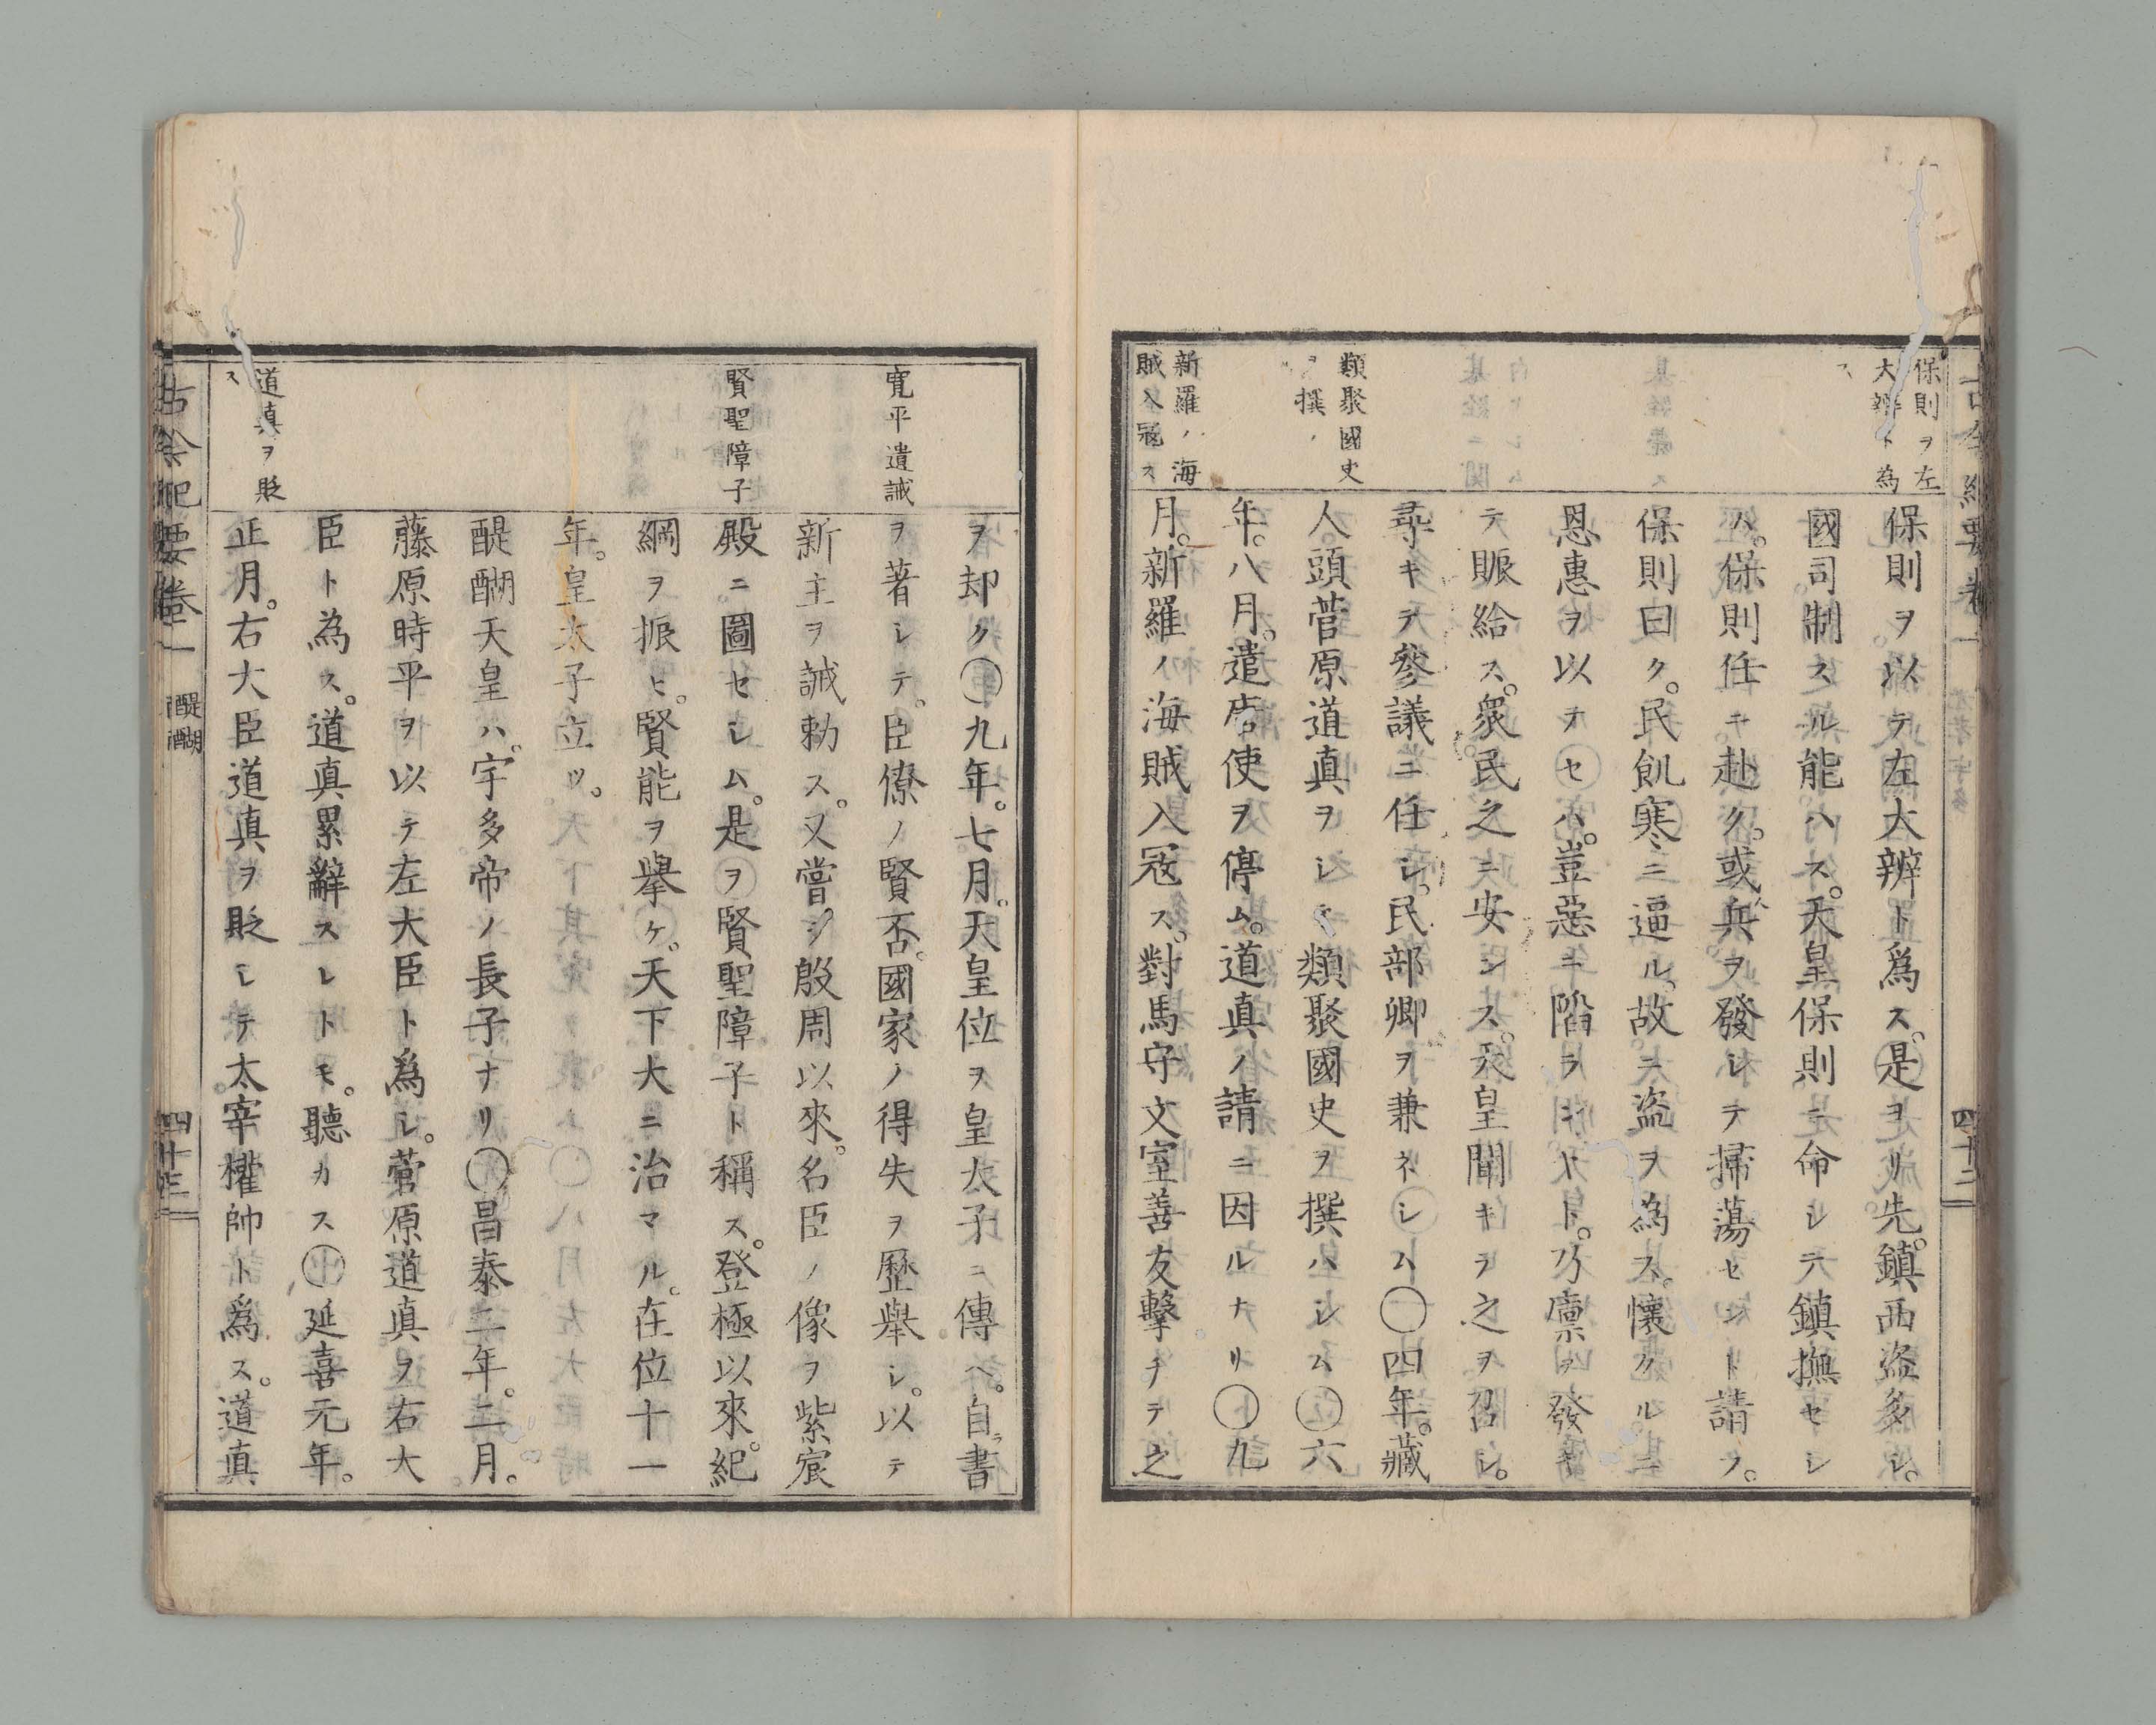 保則ヲ左
大辨ト為
ス
類聚國史
ヲ撰ハシム
新羅ノ海
賊入冦ス
保則ヲ以テ左大辨ト爲ス。是ヨリ先。鎮西盗多シ。
國司制スル能ハス。天皇保則ニ命シテ鎮撫セシ
ム。保則任ニ赴ク。或人兵ヲ發シテ掃蕩セント請フ。
保則曰ク。民飢寒ニ逼ル。故ニ盗ヲ為ス。懐クルニ
恩惠ヲ以テセハ。豈惡ニ陷ランヤト。乃廩ヲ發キ
テ賑給ス。衆民之ニ安シス。天皇聞キテ之ヲ召シ。
尋キテ參議ニ任シ。民部卿ヲ兼ネシム〇四年。藏
人頭菅原道真ヲシテ類聚國史ヲ撰ハシム〇六
年。八月。遣唐使ヲ停ム。道真ノ請ニ因ルナリ〇九
月。新羅ノ海賊入冦ス。對馬守文室善友擊チテ之
古今紀要卷一
四十二
寛平遺誡
賢聖障子
道真ヲ貶
ス
ヲ却ク〇九年。七月。天皇位ヲ皇太子ニ傳ヘ。自ラ書
ヲ著シテ。臣僚ノ賢否。國家ノ得失ヲ歷舉シ。以テ
新主ヲ誡勅ス。又嘗テ殷周以來。名臣ノ像ヲ紫宸
殿ニ圖セシム。是ヲ賢聖障子ト稱ス。登極以來。紀
綱ヲ振ヒ。賢能ヲ擧ケ。天下大ニ治マル。在位十一
年。皇太子立ツ。
醍醐天皇ハ。宇多帝ノ長子ナリ〇昌泰二年。二月。
藤原時平ヲ以テ左大臣ト爲シ。菅原道真ヲ右大
臣ト為ス。道真累辭スレトモ。聽カス〇延喜元年。
正月。右大臣道真ヲ貶シテ太宰權帥ト爲ス。道真
古今紀要卷一 醍醐
四十三